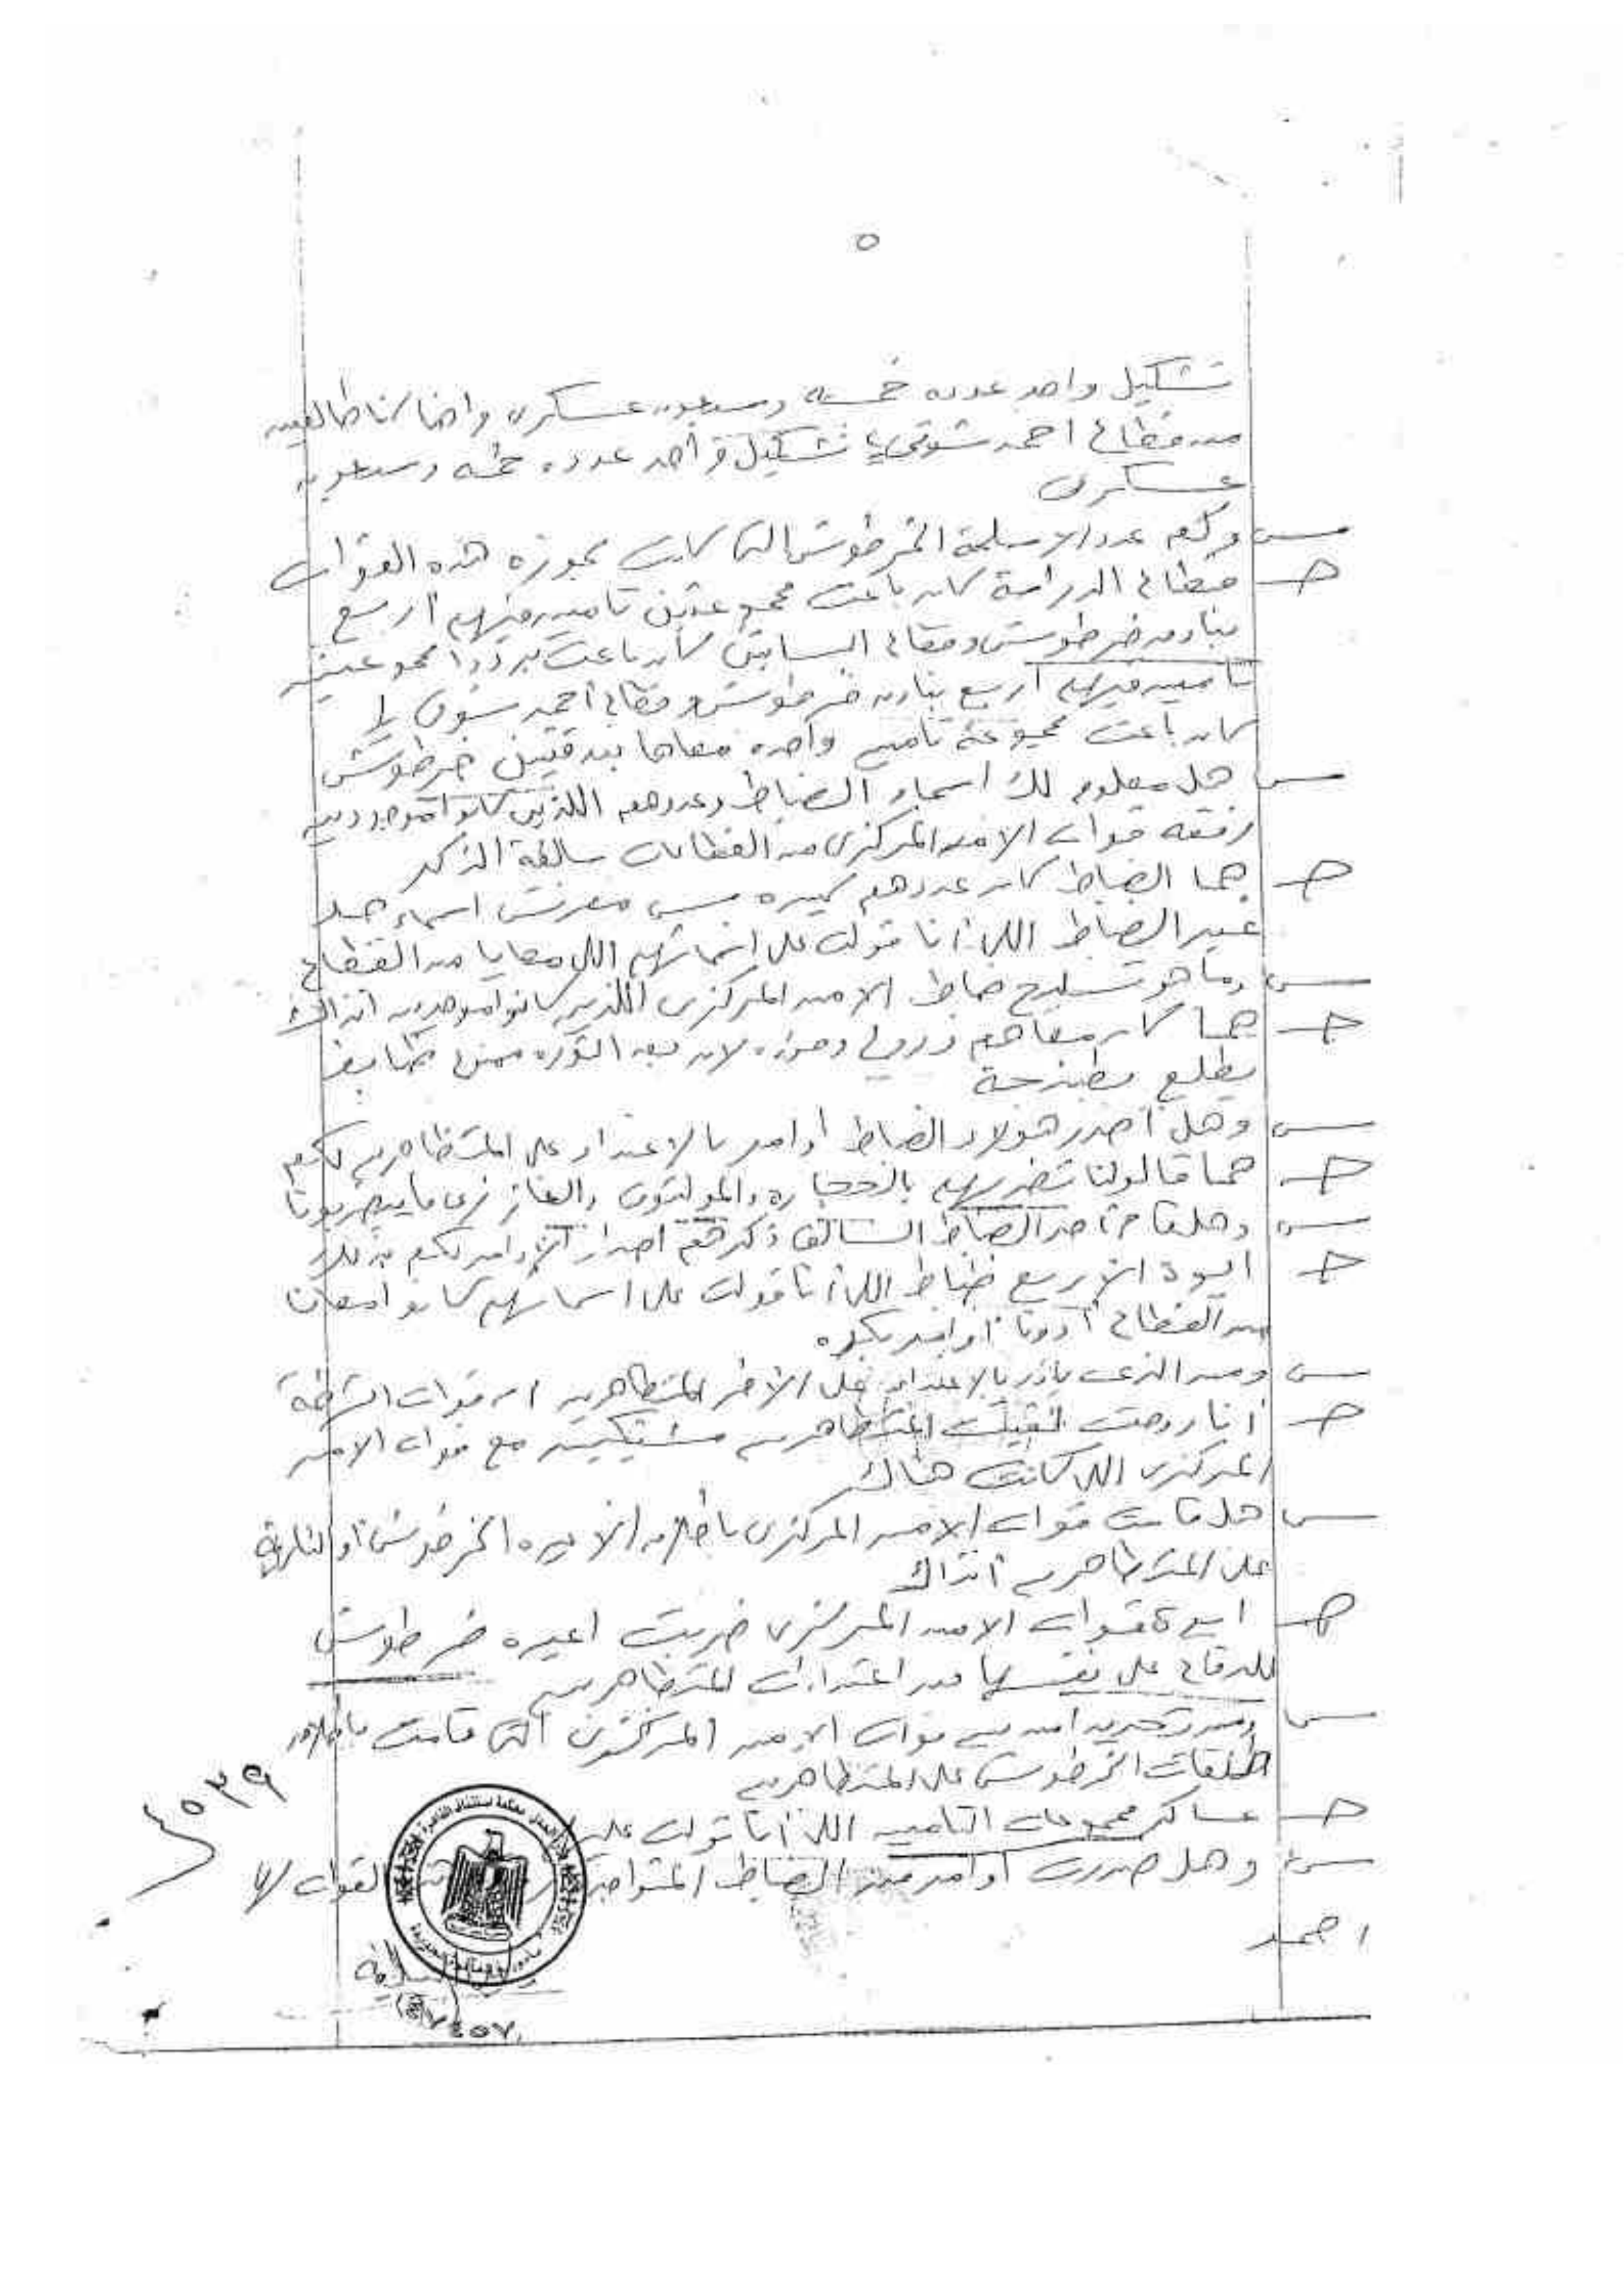 ٥
تشكيل واحد عدده خمسه وسبعون عسكرى واحنا كنا طالعين
من قطاع احمد شوقى تشكيل واحد عدده خمسه وسبعون
عسكرى
س وكم عدد الاسلحة الخرطوش التى كانت بحوزه هذه القوات
جـ قطاع الدراسة كان باعت مجموعتين تامين فيهم اربع
بنادق خرطوش وقطاع السابق كان باعت بردوا مجموعتين
تامين فيهم اربع بنادق خرطوش وقطاع احمد شوقى
كان باعت مجموعة تامين واحده معاها بندقيتين خرطوش
س هل معلوم لك اسماء الضباط وعددهم اللذين كانوا متواجدين
رفقه قوات الامن المركزى من القطاعات سالفة الذكر
جـ هما الضباط كان عددهم كبيره بس معرفش اسماء حد
غير الضباط اللى انا قولت على اسمائهم اللى معايا من القطاع
س وما هو تسليح ضباط الامن المركزى اللذين كانوا موجودين انذاك
جـ هما كان معاهم دروع وخوزه لان بعد الثوره ممنوع ظابط
يطلع بطبنجة
س وهل اصدر هولاء الضباط اوامر بالاعتداء على المتظاهرين لكم
جـ هما قالولنا نضربهم بالحجاره والمولتوف والغاز زى ما بيضربونا
س وهل قام احد الضباط السالف ذكرهم اصدار الاوامر لكم بذلك
جـ ايوة الاربع ظباط اللى انا قولت على اسمائهم كانوا معانا
من القطاع ادونا اوامر بكده
س ومن الذى بادر بالاعتداء على الاخر المتظاهرين ام قوات الشرطة
جـ انا روحت لقيت المتظاهرين مشتبكين مع قوات الامن
المركزى اللى كانت هناك
س هل قامت قوات الامن المركزى باطلاق الاعيره الخرطوش او النارية
على المتظاهرين انذاك
جـ ايوة قوات الامن المركزى ضربت اعيره خرطوش
للدفاع على نفسها من اعتداءات المتظاهرين
س ومن تحديدا من قوات الامن المركزى التى قامت باطلاق
طلقات الخرطوش على المتظاهرين
جـ عساكر مجموعات التامين اللى انا قولت عليها
س وهل صدرت اوامر من الضباط القوات لها
احمد